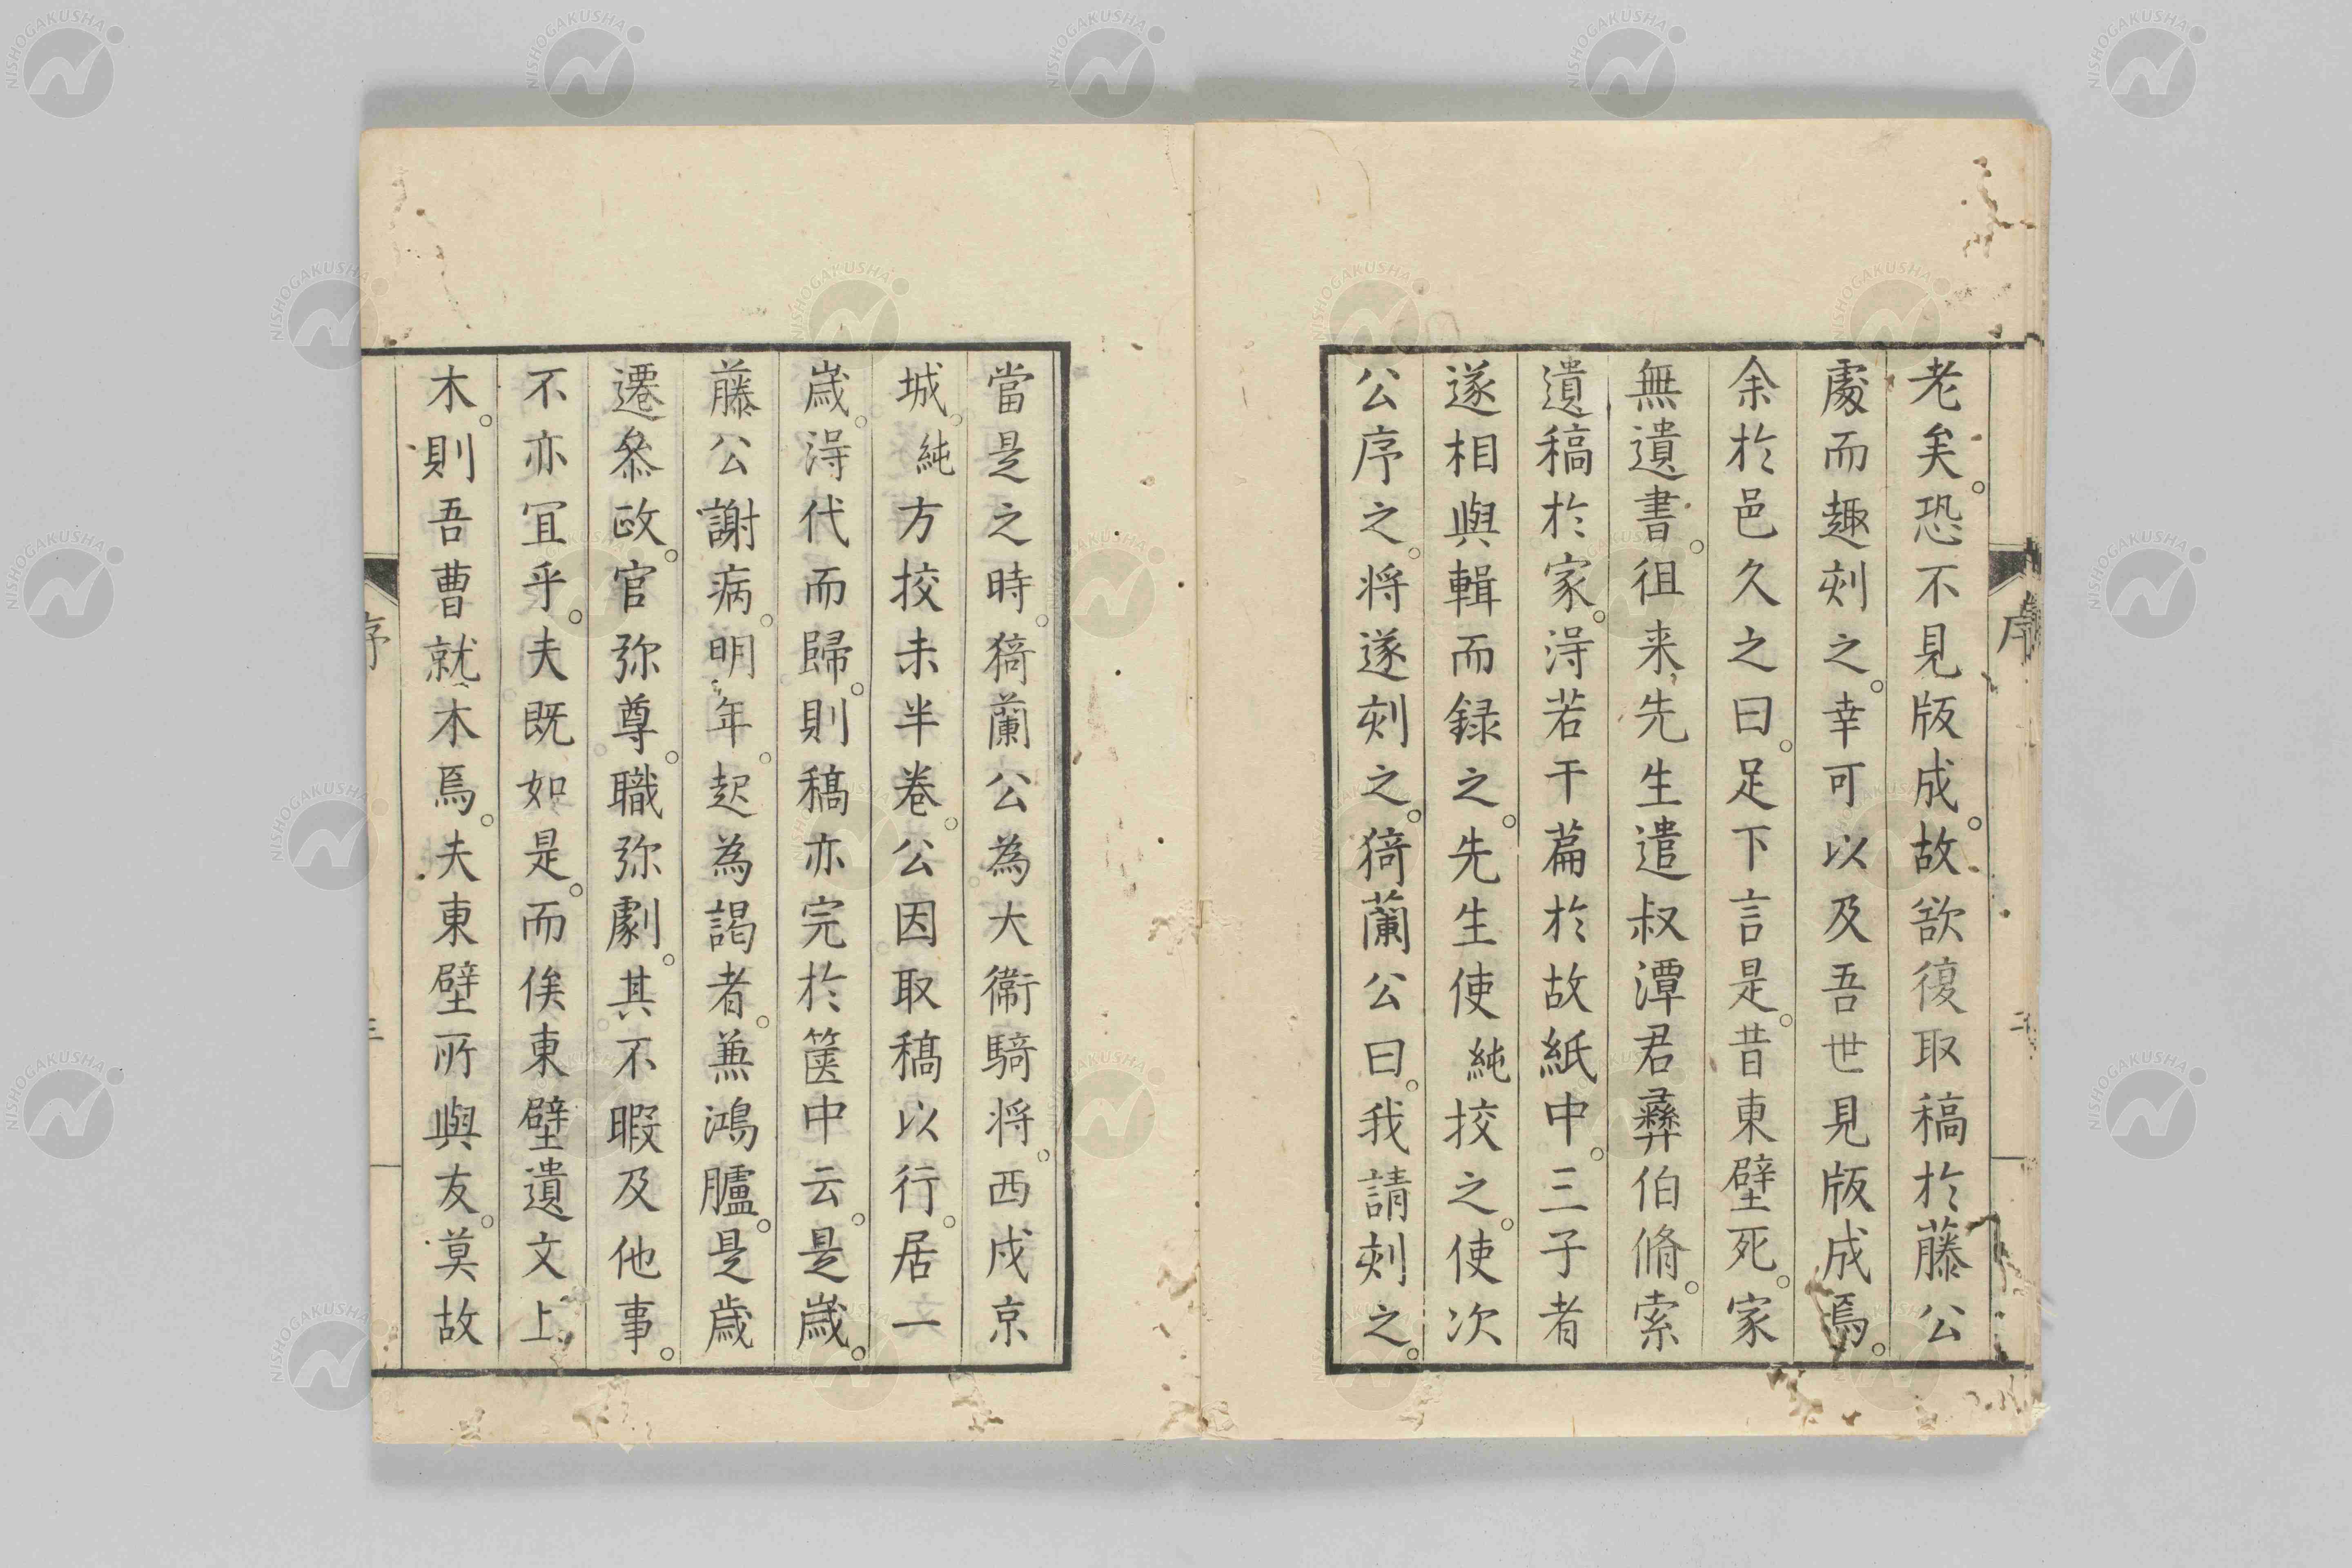 老矣。恐不見版成。故欲復取稿於藤公
處而趣刻之。幸可以及吾世見版成焉。
余於邑久之曰。足下言是。昔東壁死。家
無遺書。徂来先生遣叔潭君彝伯脩。索
遺稿於家。淂若干篇於故紙中。三子者
遂相與輯而録之。先生使純挍之。使次
公序之。将遂刻之。猗蘭公曰。我請刻之。
當是之時。猗蘭公為大衛騎将。西戍京
城。純方挍未半卷。公因取稿以行。居一
歳。淂代而歸。則稿亦完於篋中云。是歳。
藤公謝病。明年。起為謁者。兼鴻臚。是歳
遷叅政。官弥尊。職弥劇。其不暇及他事。
不亦冝乎。夫既如是。而俟東壁遺文上
木。則吾曹就木焉。夫東壁所與友。莫故
序
二
序
三
NISHOGAKUSHA